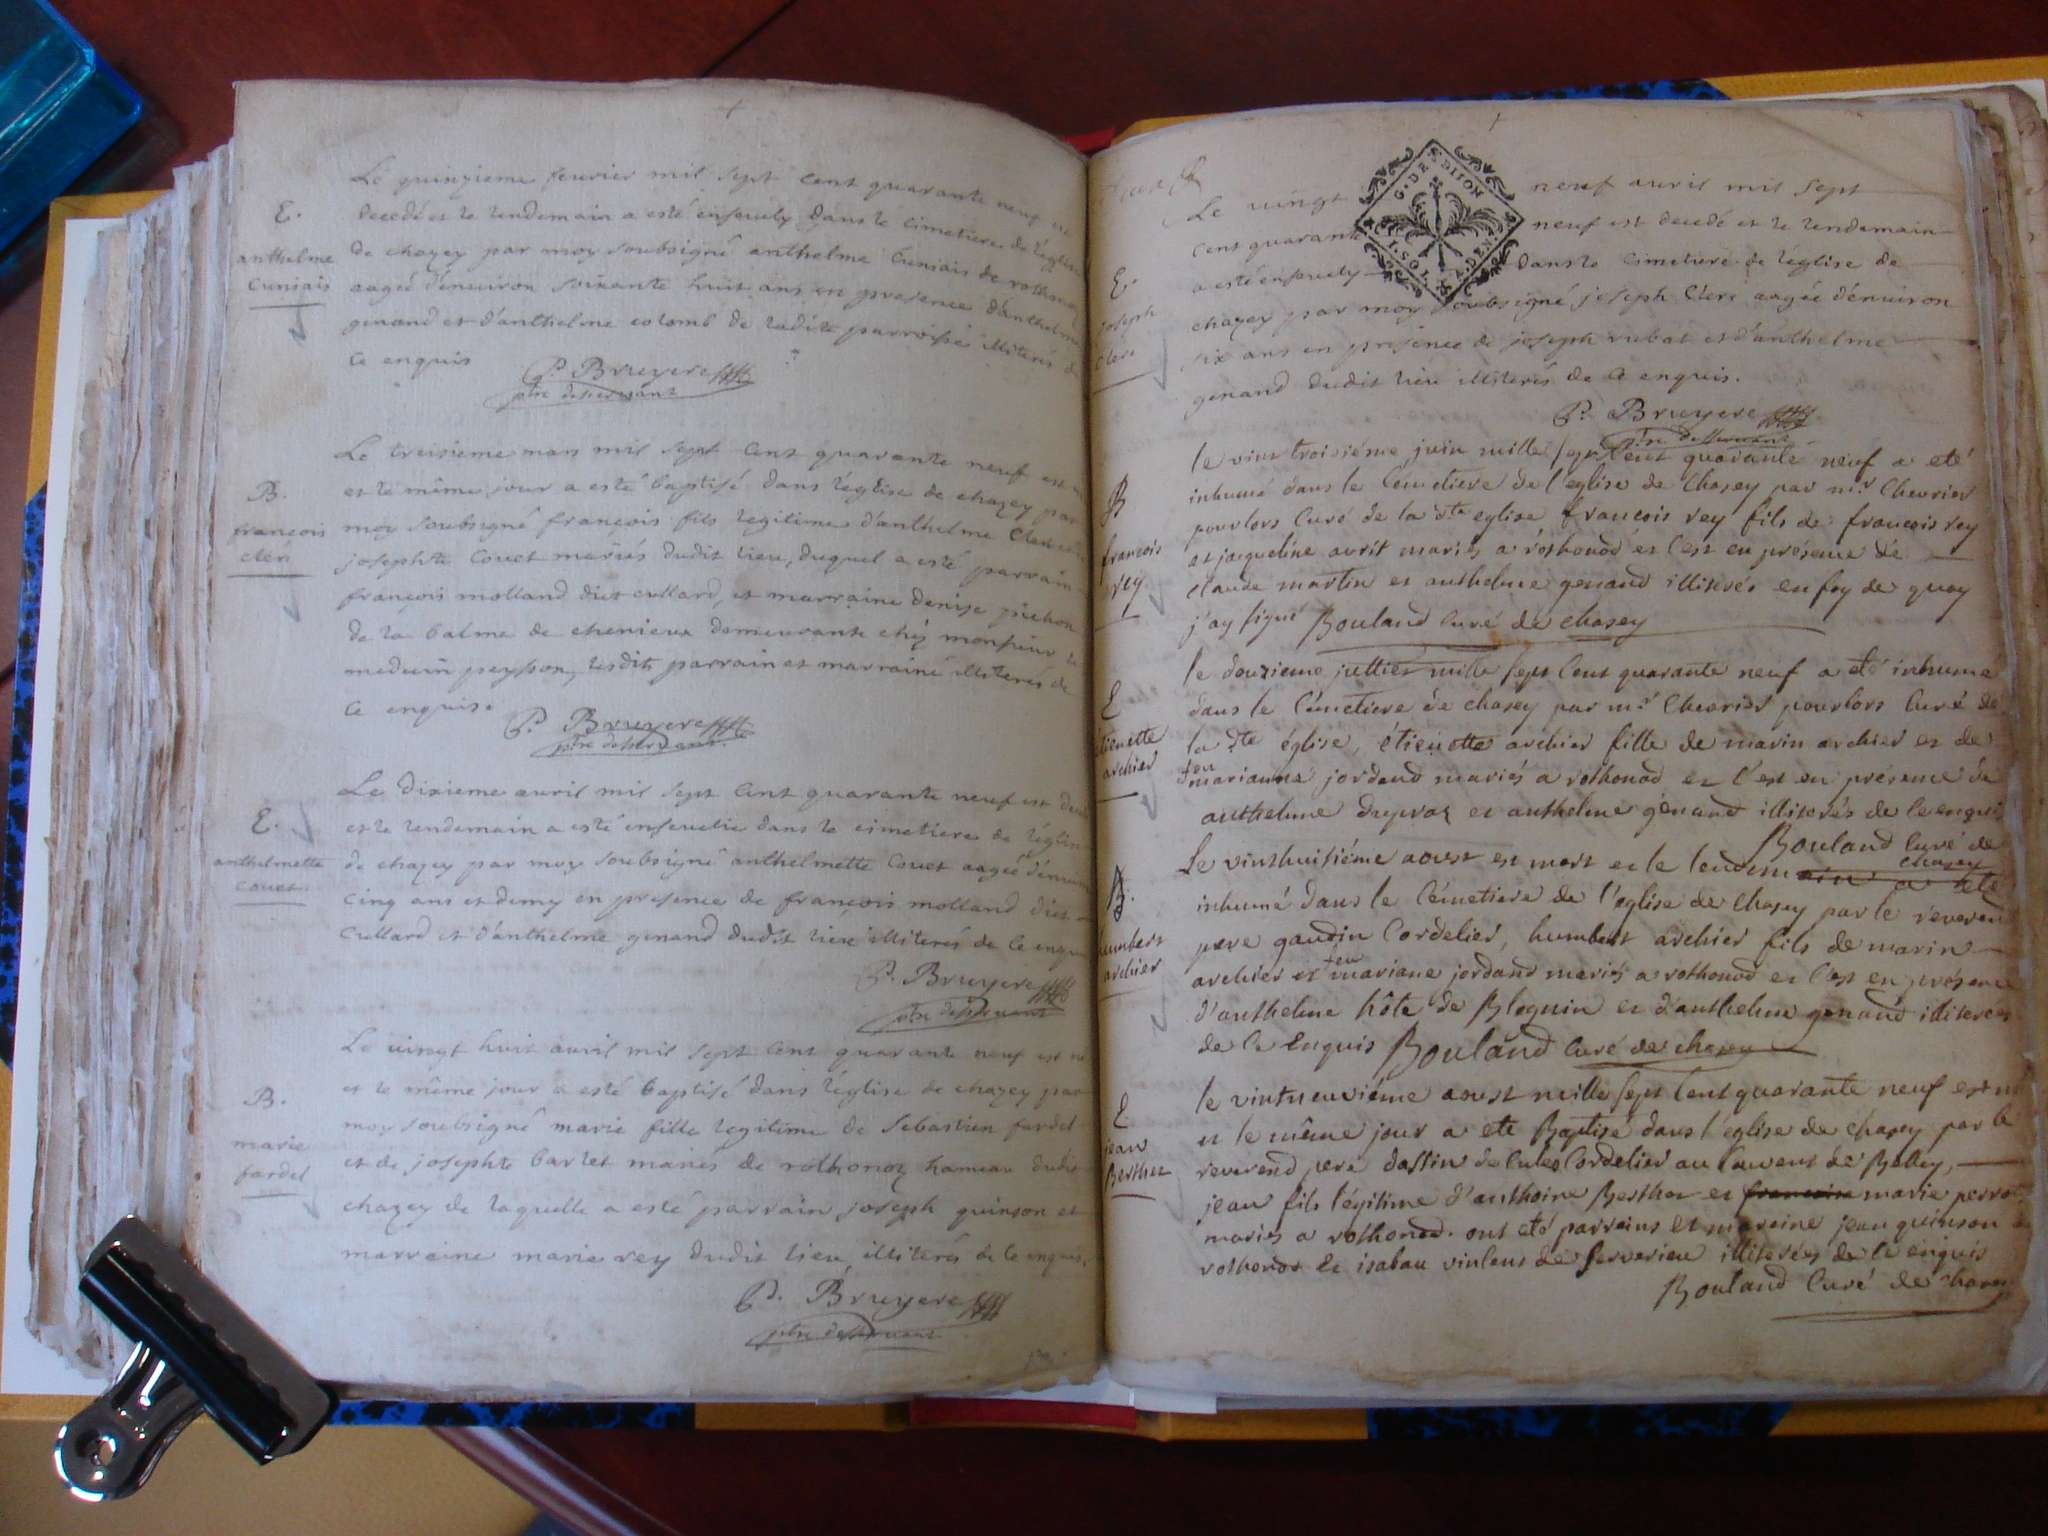 Le quinzieme feurier mil sept cent quarante neuf est
decedé et le lendemain a esté enseuely dans le cimetiere de l'église
de chazey par moy soubsigné anthelme Cunsais de rothonod
aagé d'enuiron soixante huit ans en presence d'anthelme
genand et d'anthelme colomb de ladite parroisse illiterés de
ce enquis
E.
anthelme
Cunsais
P. Bruyere
ptre desseruant
Le treisieme mars mil sept cent quarante neuf est
et le même jour a esté baptisé dans l'église de chazey par
moy soubsigné françois fils legitime d'anthelme Clerc
josephte Couet mariés dudit lieu, duquel a esté parrain
françois molland dict cullard, et marraine denise pichon
de la balme de chenieux demeurante chéz monsieur le
medecin peysson, lesdits parrain et marraine illiterés de
ce enquis.
B.
françois
clerc
P. Bruyere
ptre desseruant
Le dixieme auril mil sept cent quarante neuf est
et le lendemain a esté enseuelie dans le cimetiere de l'église
de chazey par moy soubsigné anthelmette Couet aagée d'enuiron
cinq ans et demy en presence de françois molland dict
Cullard et d'anthelme genand dudit lieu illiterés de ce enquis
E.
anthelmette
couet
P. Bruyere
ptre desseruant
Le uingt huit auril mil sept cent quarante neuf est né
et le même jour a esté baptisé dans l'église de chazey par
moy soubsigné marie fille legitime de Sebastien fardel
et de josephte barlet mariés de rothonoz hameau dudit
chazey de laquelle a esté parrain joseph quinson et
marraine marie rey dudit lieu, illiterés de ce enquis.
B.
marie
fardel
P. Bruyere
ptre desseruant
G. DE DIJON
Le uingt neuf auril mil sept
cent quarante neuf est decedé et le lendemain
a esté enseuely dans le cimetiere de l'église de
chazey par moy soubsigné joseph Clerc aagée d'enuiron
six ans en presence de joseph rubat et d'anthelme
genand dudit lieu illiterés de ce enquis.
E.
joseph
clerc
P. Bruyere
ptre desseruant
le vint troisiéme juin mille sept cent quarante neuf a eté
inhumé dans le Cémetiere de l'eglise de Chasey par mr. Chevrier
pourlors Curé de la dte eglise, francois rey fils de francois rey
et jacqueline avrit mariés a rothonod et c'est en présence de
claude martin et anthelme genand illiterés en foy de quoy
j'ay signé Bouland Curé de chasey
B
francois
rey
le douzieme juillier mille sept cent quarante neuf a eté inhumé
dans le Cémetiere de chasey par mr. Chevrier pourlors Curé de
la dte église, étienette archier fille de marin archier et de
feu marianne jordand mariés a rothonod et c'est en présence de
anthelme drevaz et anthelme génand illiterés de ce enquis
E
étienette
archier
Bouland Curé de
chasey
Le vinthuitiéme aoust est mort et le lendemain a eté
inhumé dans le Cémetiere de l'eglise de Chasey par le reverend
pere gaudin Cordelier, humbert archier fils de marin
archier et feu mariane jordand mariés a rothonod et c'est en présence
d'anthelme hôte de Blognin et d'anthelme genand illiterés
de ce Enquis Bouland Curé de chasey
B.
humbert
archier
le vintneuviéme aoust mille sept cent quarante neuf est né
et le même jour a eté Baptisé dans l'eglise de chasey par le
reverend pere dassin de Cules Cordelier au Couvent de Belley,
jean fils légitime d'anthoine Berthet et francoise marie perrot
mariés a rothonod. ont eté parrains et maraine jean quinson
rothonod et isabau vinlens de serverieu illiterés de ce enquis
E
jean
Berthet
Bouland Curé de chasey